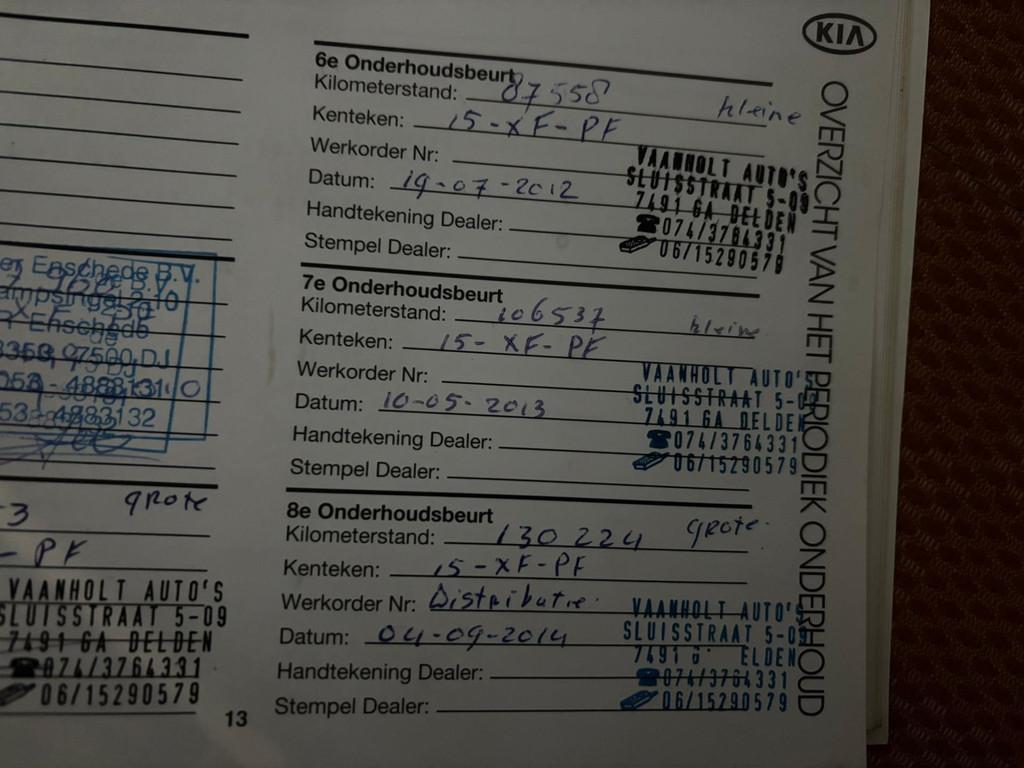 KIA
OVERZICHT VAN HET PERIODIEK ONDERHOUD
6e Onderhoudsbeurt
Kilometerstand: 87558 kleine
Kenteken: 15-XF-PF
Werkorder Nr:
Datum: 19-07-2012
Handtekening Dealer:
Stempel Dealer:
VAANHOLT AUTO'S
SLUISSTRAAT 5-09
7491 GA DELDEN
☎074/3764331
06/15290579
7e Onderhoudsbeurt
Kilometerstand: 106537 kleine
Kenteken: 15-XF-PF
Werkorder Nr:
Datum: 10-05-2013
Handtekening Dealer:
Stempel Dealer:
VAANHOLT AUTO'S
SLUISSTRAAT 5-09
7491 GA DELDEN
☎074/3764331
06/15290579
8e Onderhoudsbeurt
Kilometerstand: 130224 grote
Kenteken: 15-XF-PF
Werkorder Nr: Distributie.
Datum: 04-09-2014
Handtekening Dealer:
Stempel Dealer:
VAANHOLT AUTO'S
SLUISSTRAAT 5-09
7491 G ELDEN
☎074/3764331
06/15290579
er Enschede B.V.
Enschede
4883132
grote
-3
-PF
VAANHOLT AUTO'S
SLUISSTRAAT 5-09
7491 GA DELDEN
☎074/3764331
06/15290579
13